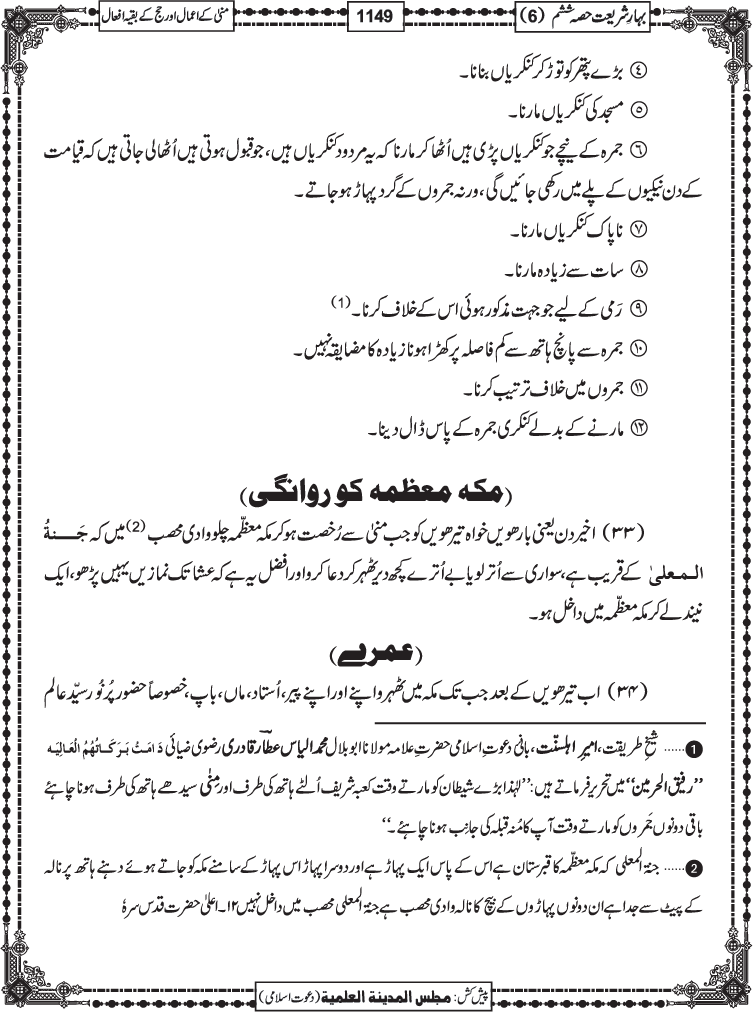 بہار شریعت حصہ ششم (6)
1149
منیٰ کے اعمال اور حج کے بقیہ افعال
④ بڑے پتھر کو توڑ کر کنکریاں بنانا۔
⑤ مسجد کی کنکریاں مارنا۔
⑥ جمرہ کے نیچے جو کنکریاں پڑی ہیں اُٹھا کر مارنا کہ یہ مردود کنکریاں ہیں، جو قبول ہوتی ہیں اُٹھا لی جاتی ہیں کہ قیامت
کے دن نیکیوں کے پلے میں رکھی جائیں گی، ورنہ جمروں کے گرد پہاڑ ہو جاتے۔
⑦ ناپاک کنکریاں مارنا۔
⑧ سات سے زیادہ مارنا۔
⑨ رَمی کے لیے جو جہت مذکور ہوئی اس کے خلاف کرنا۔ (1)
⑩ جمرہ سے پانچ ہاتھ سے کم فاصلہ پر کھڑا ہونا زیادہ کا مضایقہ نہیں۔
⑪ جمروں میں خلاف ترتیب کرنا۔
⑫ مارنے کے بدلے کنکری جمرہ کے پاس ڈال دینا۔
(مکہ معظمہ کو روانگی)
(۳۳) اخیر دن یعنی بارھویں خواہ تیرھویں کو جب منیٰ سے رُخصت ہو کر مکہ معظّمہ چلو وادی محصب (2) میں کہ جَنۃُ
المعلیٰ کے قریب ہے، سواری سے اُتر لو یا بے اُترے کچھ دیر ٹھہر کر دعا کرو اور افضل یہ ہے کہ عشا تک نمازیں یہیں پڑھو، ایک
نیند لے کر مکہ معظّمہ میں داخل ہو۔
(عمرے)
(۳۴) اب تیرھویں کے بعد جب تک مکہ میں ٹھہرو اپنے اور اپنے پیر، اُستاد، ماں، باپ، خصوصاً حضور پُرنُور سیّد عالم
1 ...... شیخِ طریقت، امیرِ اہلسنّت، بانیِ دعوتِ اسلامی حضرتِ علامہ مولانا ابو بلال محمد الیاس عطار قادری رضوی ضیائی دَامَتْ بَرَکَاتُہُمُ الْعَالِیَہ
’’رفیق الحرمین‘‘ میں تحریر فرماتے ہیں: ’’لہٰذا بڑے شیطان کو مارتے وقت کعبہ شریف اُلٹے ہاتھ کی طرف اور مِنٰی سیدھے ہاتھ کی طرف ہونا چاہئے
باقی دونوں جَمروں کو مارتے وقت آپ کا مُنہ قبلہ کی جانب ہونا چاہئے۔‘‘
2 ...... جنۃ المعلی کہ مکہ معظّمہ کا قبرستان ہے اس کے پاس ایک پہاڑ ہے اور دوسرا پہاڑ اس پہاڑ کے سامنے مکہ کو جاتے ہوئے دہنے ہاتھ پر نالہ
کے پیٹ سے جدا ہے ان دونوں پہاڑوں کے بیچ کا نالہ وادی محصب ہے جنۃ المعلی محصب میں داخل نہیں ۱۲۔ اعلیٰ حضرت قدس سرہٗ
پیش کش: مجلس المدینۃ العلمیۃ (دعوت اسلامی)